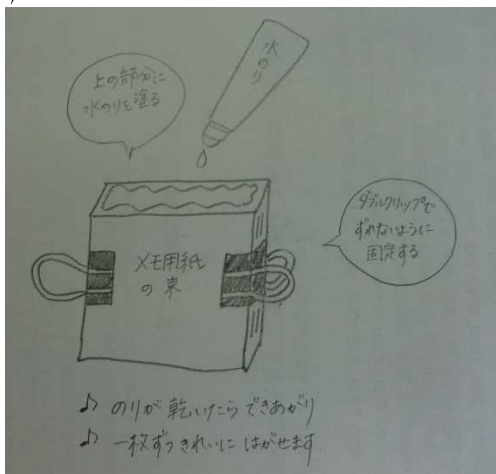 上の部分に
水のりを塗る
水のり
ダブルクリップで
ずれないように
固定する
メモ用紙
の束
♪ のりが乾いたらできあがり
♪ 一枚ずつきれいにはがせます